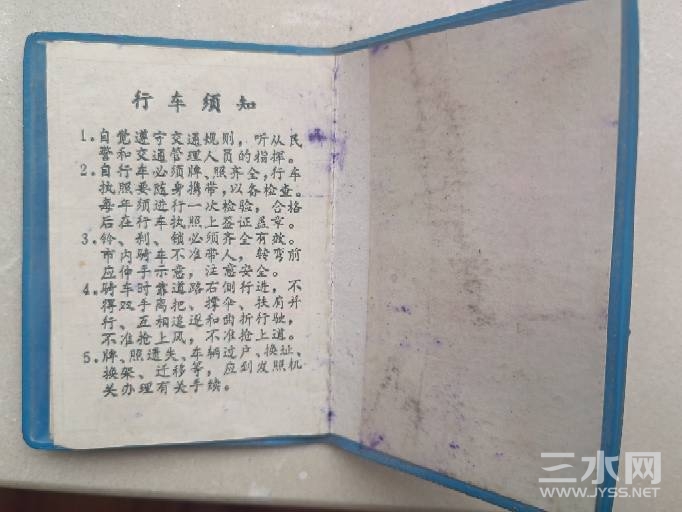 行车须知
1.自觉遵守交通规则，听从民
警和交通管理人员的指挥。
2.自行车必须牌、照齐全，行车
执照要随身携带，以备检查。
每年须进行一次检验，合格
后在行车执照上签证盖章。
3.铃、刹、锁必须齐全有效。
市内骑车不准带人，转弯前
应伸手示意，注意安全。
4.骑车时靠道路右侧行进，不
得双手离把、撑伞、扶肩并
行、互相追逐和曲折行驶，
不准抢上风，不准抢上道。
5.牌、照遗失、车辆过户、换址、
换架、迁移等，应到发照机
关办理有关手续。
三水网
WWW.JYSS.NET